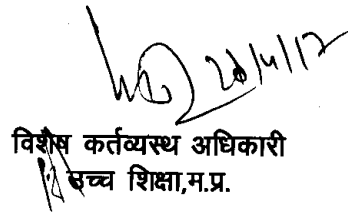 28/4/17
विशेष कर्तव्यस्थ अधिकारी
उच्च शिक्षा,म.प्र.